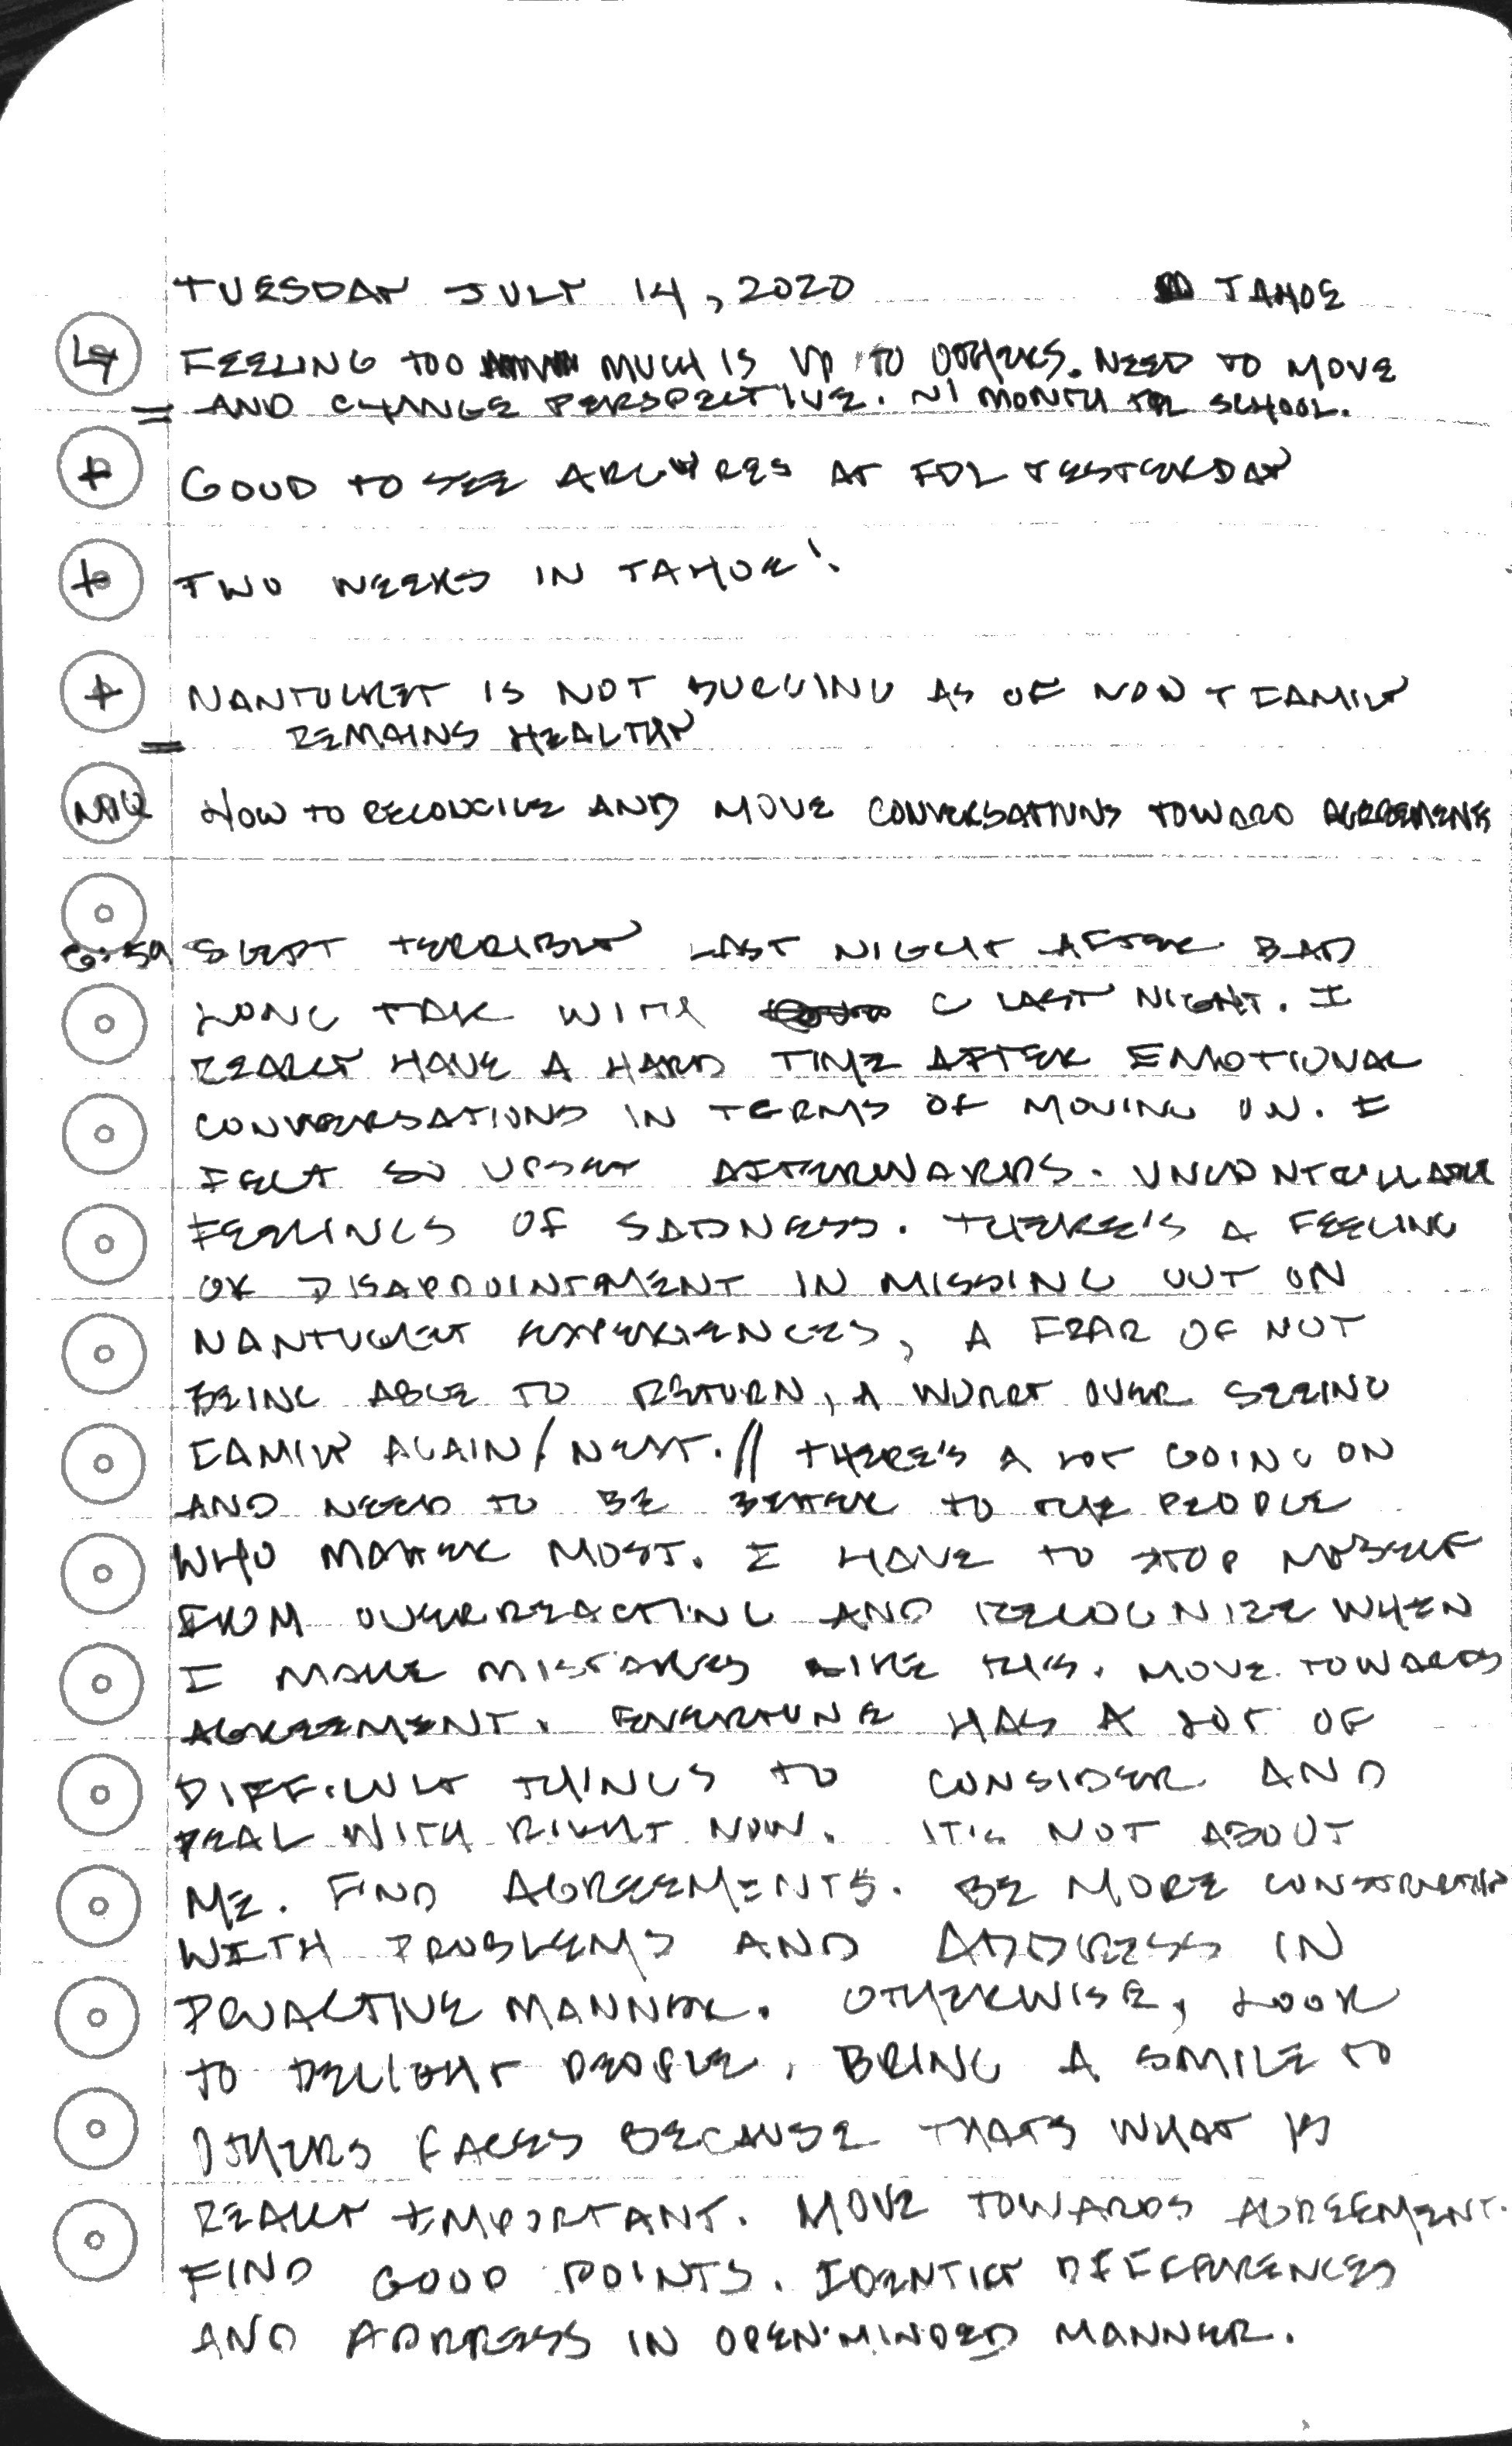 TUESDAY JULY 14, 2020 TAHOE
4 FEELING TOO MUCH IS UP TO OTHERS. NEED TO MOVE
= AND CHANGE PERSPECTIVE. ~1 MONTH TIL SCHOOL.
+ GOOD TO SEE AT FDL YESTERDAY
+ TWO WEEKS IN TAHOE!
+ NANTUCKET IS NOT AS OF NOW + FAMILY
= REMAINS HEALTHY
HOW TO RECONCILE AND MOVE CONVERSATIONS TOWARD AGREEMENTS
6:59 SLEPT TERRIBLY LAST NIGHT AFTER BAD
LONG TALK WITH C LAST NIGHT. I
REALLY HAVE A HARD TIME AFTER EMOTIONAL
CONVERSATIONS IN TERMS OF MOVING ON. I
FELT SO UPSET AFTERWARDS. UNCONTROLLABLE
FEELINGS OF SADNESS. THERE'S A FEELING
OF DISAPPOINTMENT IN MISSING OUT ON
NANTUCKET EXPERIENCES, A FEAR OF NOT
BEING ABLE TO RETURN, A WORRY OVER SEEING
FAMILY AGAIN/NEXT. // THERE'S A LOT GOING ON
AND NEED TO BE BETTER TO THE PEOPLE
WHO MATTER MOST. I HAVE TO STOP MYSELF
FROM OVERREACTING AND RECOGNIZE WHEN
I MAKE MISTAKES LIKE THIS. MOVE TOWARDS
AGREEMENT. EVERYONE HAS A LOT OF
DIFFICULT THINGS TO CONSIDER AND
DEAL WITH RIGHT NOW. IT'S NOT ABOUT
ME. FIND AGREEMENTS. BE MORE CONSTRUCTIVE
WITH PROBLEMS AND ADDRESS IN
PROACTIVE MANNER. OTHERWISE, LOOK
TO DELIGHT PEOPLE, BRING A SMILE TO
OTHERS FACES BECAUSE THATS WHAT IS
REALLY IMPORTANT. MOVE TOWARDS AGREEMENT.
FIND GOOD POINTS. IDENTIFY DIFFERENCES
AND ADDRESS IN OPEN-MINDED MANNER.